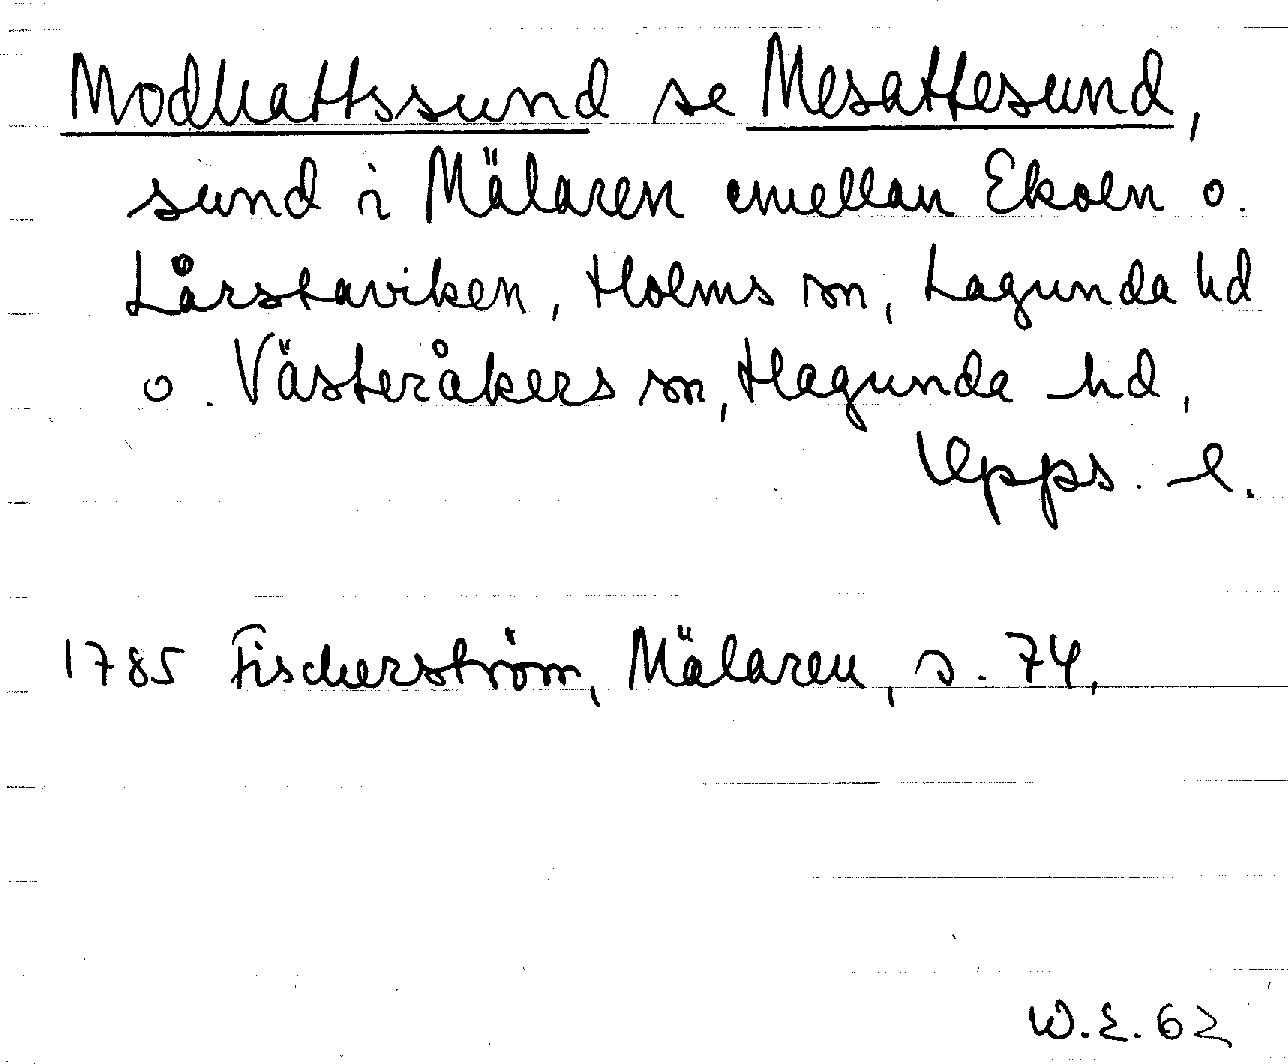 Modhattssund se Mesattesund,
sund i Mälaren emellan Ekoln o.
Lårstaviken, Holms sn, Lagunda hd
o. Västeråkers sn, Hagunda hd,
Upps. l.
1785 Fischerström, Mälaren, s. 74.
W.E. 62